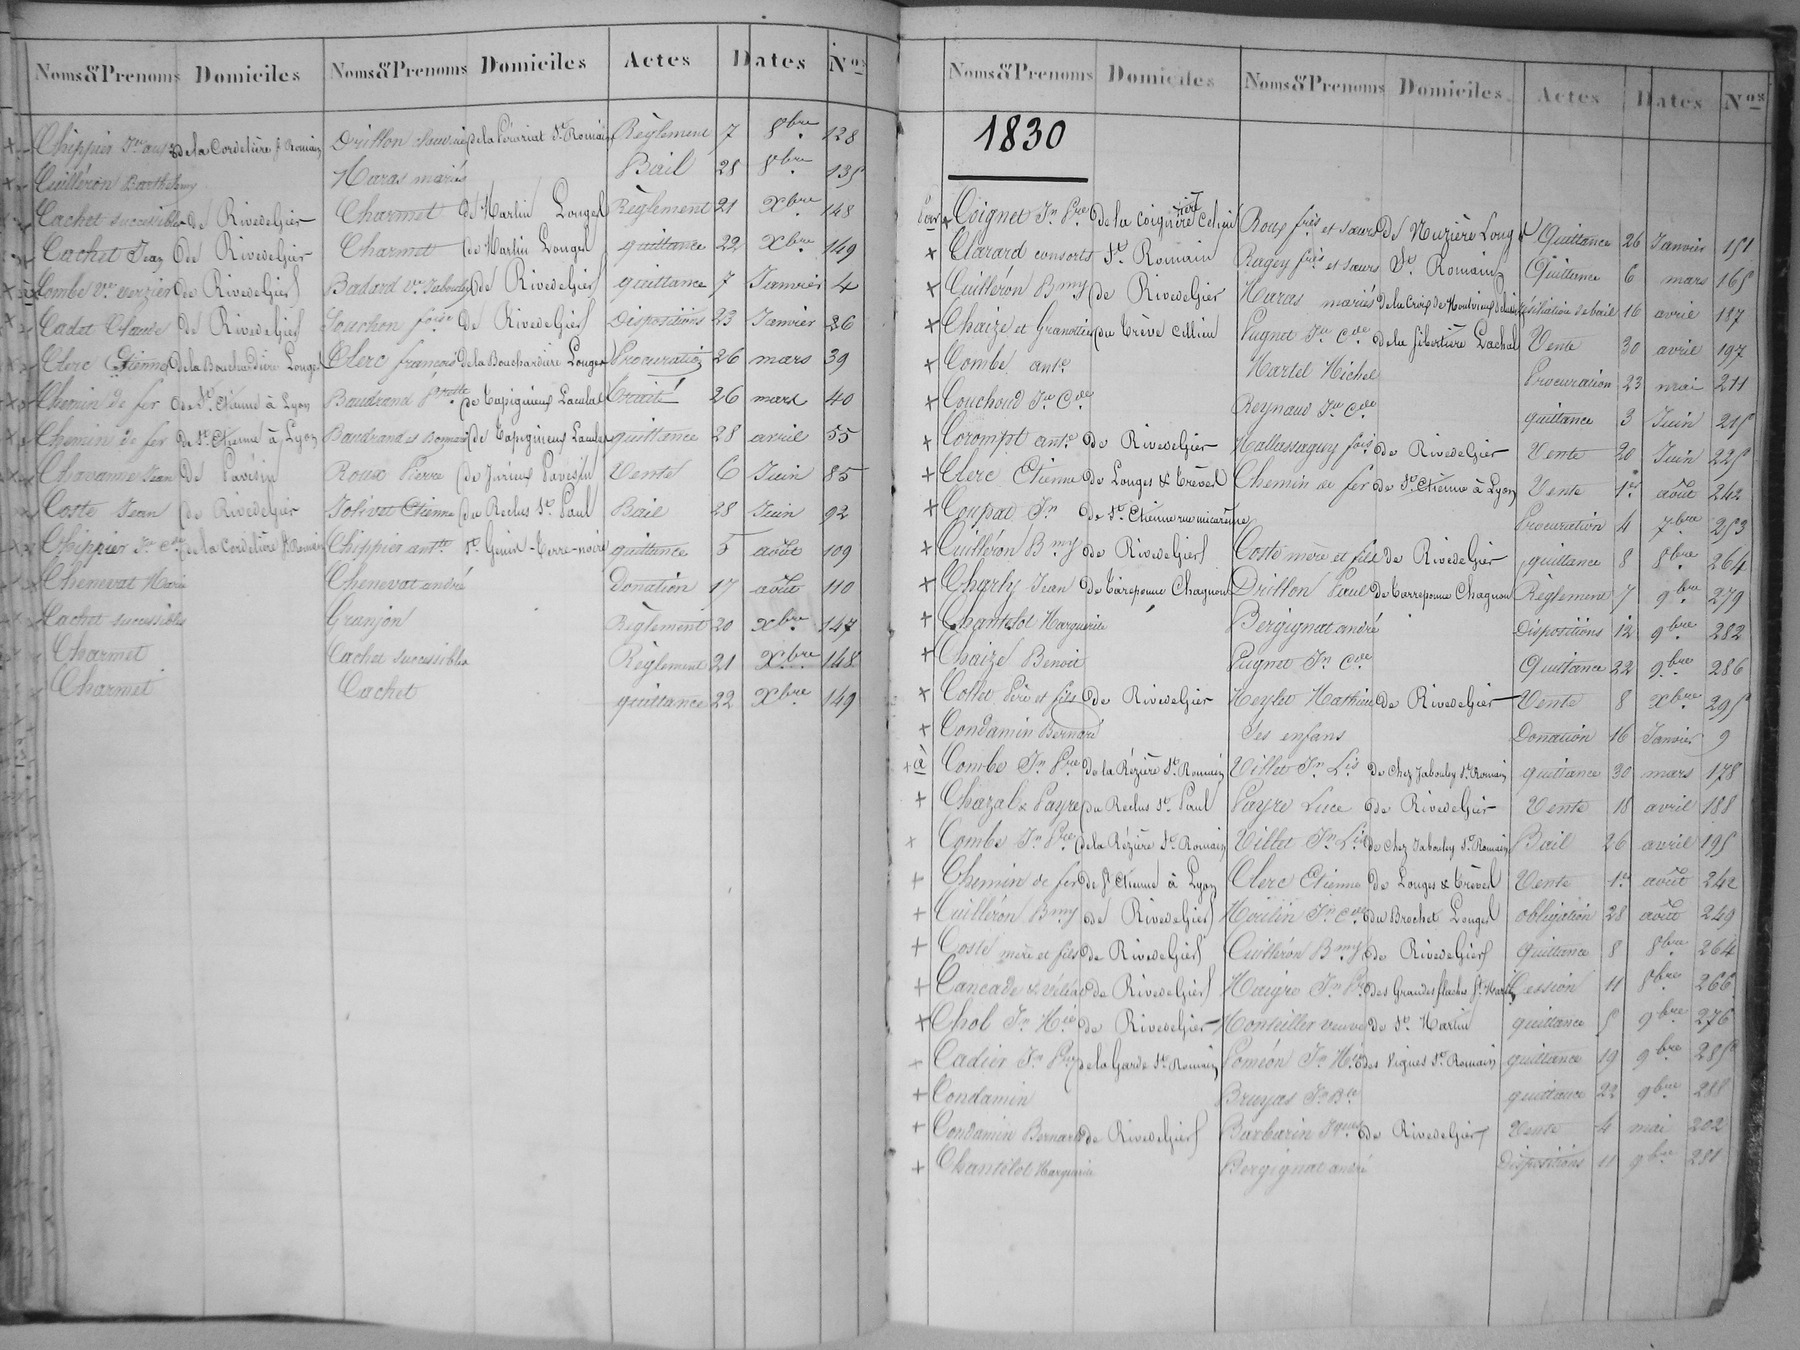 Noms & Prenoms Domiciles Noms & Prenoms Domiciles Actes Dates Nos
Chippier de la Cordelière St Romain Drillon St Romain Règlement 7 8bre 128
Cuilléron Barthélemy Maras mariés Bail 28 8bre 135
Cachet successibles de RivedeGier Charmet de St Martin Longes Règlement 21 Xbre 148
Cachet Jean de RivedeGier Charmet de St Martin Longes quittance 22 Xbre 149
à Combe Ve verzier de RivedeGier Badard Ve Jabouley de RivedeGier quittance 7 Janvier 4
Cadet Claude de RivedeGier Souchon foise de RivedeGier Dispositions 23 Janvier 26
Clerc Etienne de la Bouchardière Longes Clerc françois de la Bouchardière Longes Procuration 26 mars 39
Chemin de fer de St Etienne à Lyon Baudrand de Tapigneux Traité 26 mars 40
Chemin de fer de St Etienne à Lyon Baudrand et Bonnard de Tapigneux quittance 28 avril 55
Chavanne Jean de Pavésin Roux Pierre de Jurieux Pavesin Vente 6 Juin 85
Coste Jean de RivedeGier Jolivet Etienne du Reclus St Paul Bail 28 Juin 92
Chippier Jn Cde de la Cordelière St Romain Chippier antne St Genis-Terre-noire quittance 5 août 109
Chenevat Marie Chenevat andré Donation 17 août 110
Cachet successibles Granjon Règlement 20 Xbre 147
Charmet Cachet successibles Règlement 21 Xbre 148
Charmet Cachet quittance 22 Xbre 149
Noms & Prenoms Domiciles Noms & Prenoms Domiciles Actes Dates Nos
1830
Coignet Jn Pre de la Coignetière Celieu Roux frès et sœurs de Muzière Longes Quittance 26 Janvier 151
Clarard consorts St Romain Ragey frès et sœurs St Romain Quittance 6 mars 165
Cuilléron Bmy de RivedeGier Maras mariés de la Croix de Montvieux Résiliation de bail 16 avril 187
Chaize et Granottier du Trève Cellieu Pugnet Jn Cde de la Libertière Lachal Vente 30 avril 197
Combe antne Martel Michel Procuration 23 mai 211
Couchoud Jn Cde Reynaud Jn Cde quittance 3 Juin 215
Corompt antne de RivedeGier Mallassagny fois de RivedeGier Vente 20 Juin 225
Clerc Etienne de Longes & Trèves Chemin de fer de St Etienne à Lyon Vente 1er août 242
Coupat Jn de St Etienne rue micarême Procuration 4 7bre 253
Cuilléron Bmy de RivedeGier Coste mère et fils de RivedeGier quittance 8 8bre 264
Charly Jean de Tareponne Chagnon Drillon Paul de Tarreponne Chagnon Règlement 7 9bre 279
Chantelot Marguerite Bergignat andré Dispositions 12 9bre 282
Chaize Benoit Pugnet Jn Cde Quittance 22 9bre 286
Collet Père et fils de RivedeGier Neylet Mathieu de RivedeGier Vente 8 Xbre 295
Condamin Bernard Ses enfans Donation 16 Janvier 9
à Combe Jn Pre de la Rézière St Romain Villet Jn Lis de Chez Jabouley St Romain quittance 30 mars 178
Chazal & Payre du Reclus St Paul Payre Luce de RivedeGier Vente 18 avril 188
Combe Jn Pre de la Rézière St Romain Villet Jn Lis de Chez Jabouley St Romain Bail 26 avril 195
Chemin de fer de St Etienne à Lyon Clerc Etienne de Longes & Trèves Vente 1er août 242
Cuilléron Bmy de RivedeGier Moulin Jn Cde du Brochet Longes obligation 28 août 249
Coste mère et fils de RivedeGier Cuilléron Bmy de RivedeGier Quittance 8 8bre 264
Cancade & de RivedeGier Maigre Jn Pre des Grandes flaches St Martin Cession 11 8bre 266
Chol Jn Mie de RivedeGier Monteiller veuve de St Martin quittance 5 9bre 276
Cadier Jn Pre de la Garde St Romain Poméon Jn Mie des Vignes St Romain quittance 19 9bre 285
Condamin Bruyas Jn Bte quittance 22 9bre 288
Condamin Bernard de RivedeGier Barbarin Jques de RivedeGier Vente 4 mai 202
Chantelot Marguerite Bergignat andré Dispositions 11 9bre 281